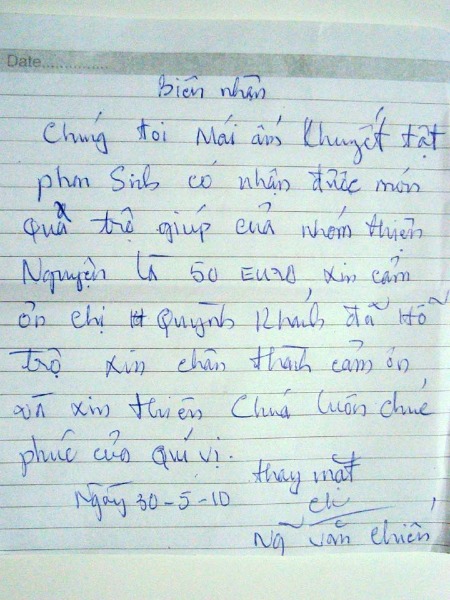 Date...............
Biên nhận
Chúng tôi Mái ấm Khuyết tật
phan Sinh có nhận được món
quà trợ giúp của nhóm thiện
Nguyện là 50 EURO, xin cảm
ơn chị Quỳnh Khanh đã Hỗ
trợ xin chân thành cảm ơn
và xin thiên Chúa luôn chúc
phúc của quí vị.
thay mặt
Ngày 30-5-10
Ng văn Chiên